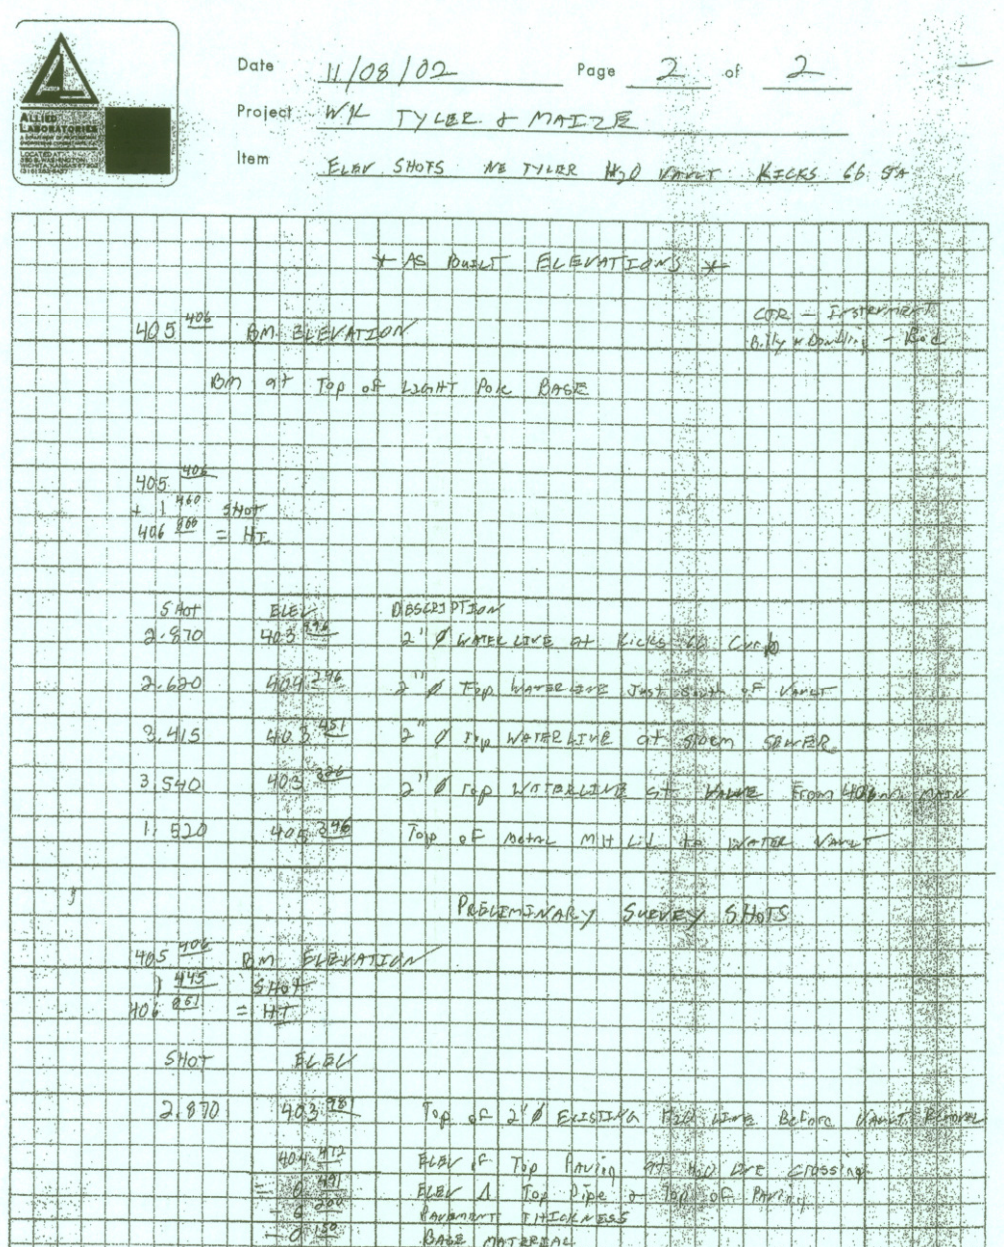 ALLIED
LABORATORIES
LOCATED AT
Date 11/08/02 Page 2 of 2
Project W/K TYLER & MAIZE
Item ELEV SHOTS NE TYLER H2O VAULT KICKS 66 STA
* AS BUILT ELEVATIONS *
CTR - INSTRUMENT
405.406 BM ELEVATION
Billy - Rod
BM at Top of LIGHT Pole BASE
405.406
+ 1.460 SHOT
406.866 = HI
SHOT ELEV DESCRIPTION
2.870 403.996 2" Ø WATER LINE at Kicks 66 Curb
2.620 404.246 2" Ø Top WATERLINE Just South of VAULT
3.415 403.451 2" Ø Top WATERLINE at STORM SEWER
3.540 403.326 2" Ø Top WATERLINE at VALVE From MAIN
1.520 405.346 Top of METAL MH Lid to WATER VAULT
PRELIMINARY SURVEY SHOTS
405.406 BM ELEVATION
1.445 SHOT
406.851 = HI
SHOT ELEV
2.870 403.981 Top of 2" Ø EXISTING H2O LINE Before VAULT REMOVAL
404.472 ELEV of Top Paving at H2O LINE Crossing
= 0.491 ELEV Δ Top Pipe Top of PAVING
PAVEMENT THICKNESS
- 0.150 BASE MATERIAL